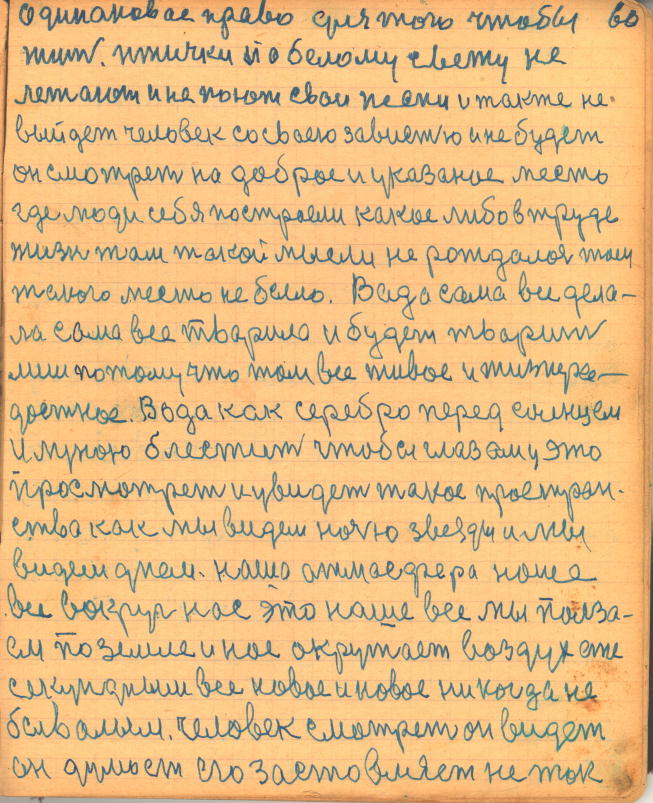 одинаковае право для того чтобы 60
жит. птички по белому свету не
летают и не поют свои песни и также не
выйдет человек со своею завистю и не будет
он смотрет на доброе и указаное место
где люди себя построели какое либо в труде
жизн там такой мысели не рождалоя там
такого место не было. Вада сама все дела-
ла сама все тварила и будет тварит
лиш потому что там все живое и жизнера-
достное. Вода как серебро перед солнцем
и луною блестит чтобы глазаму это
просмотрет и увидет такое простран-
ства как мы видем ночю звезды и мы
видем днем. наша атмасфера наше
все вокруг нас это наше все мы ползa-
ем по земле и нас окружает воздух еже
секундным все новое и новое никогда не
бывалым. человек смотрет он видет
он думает его заставляет не так